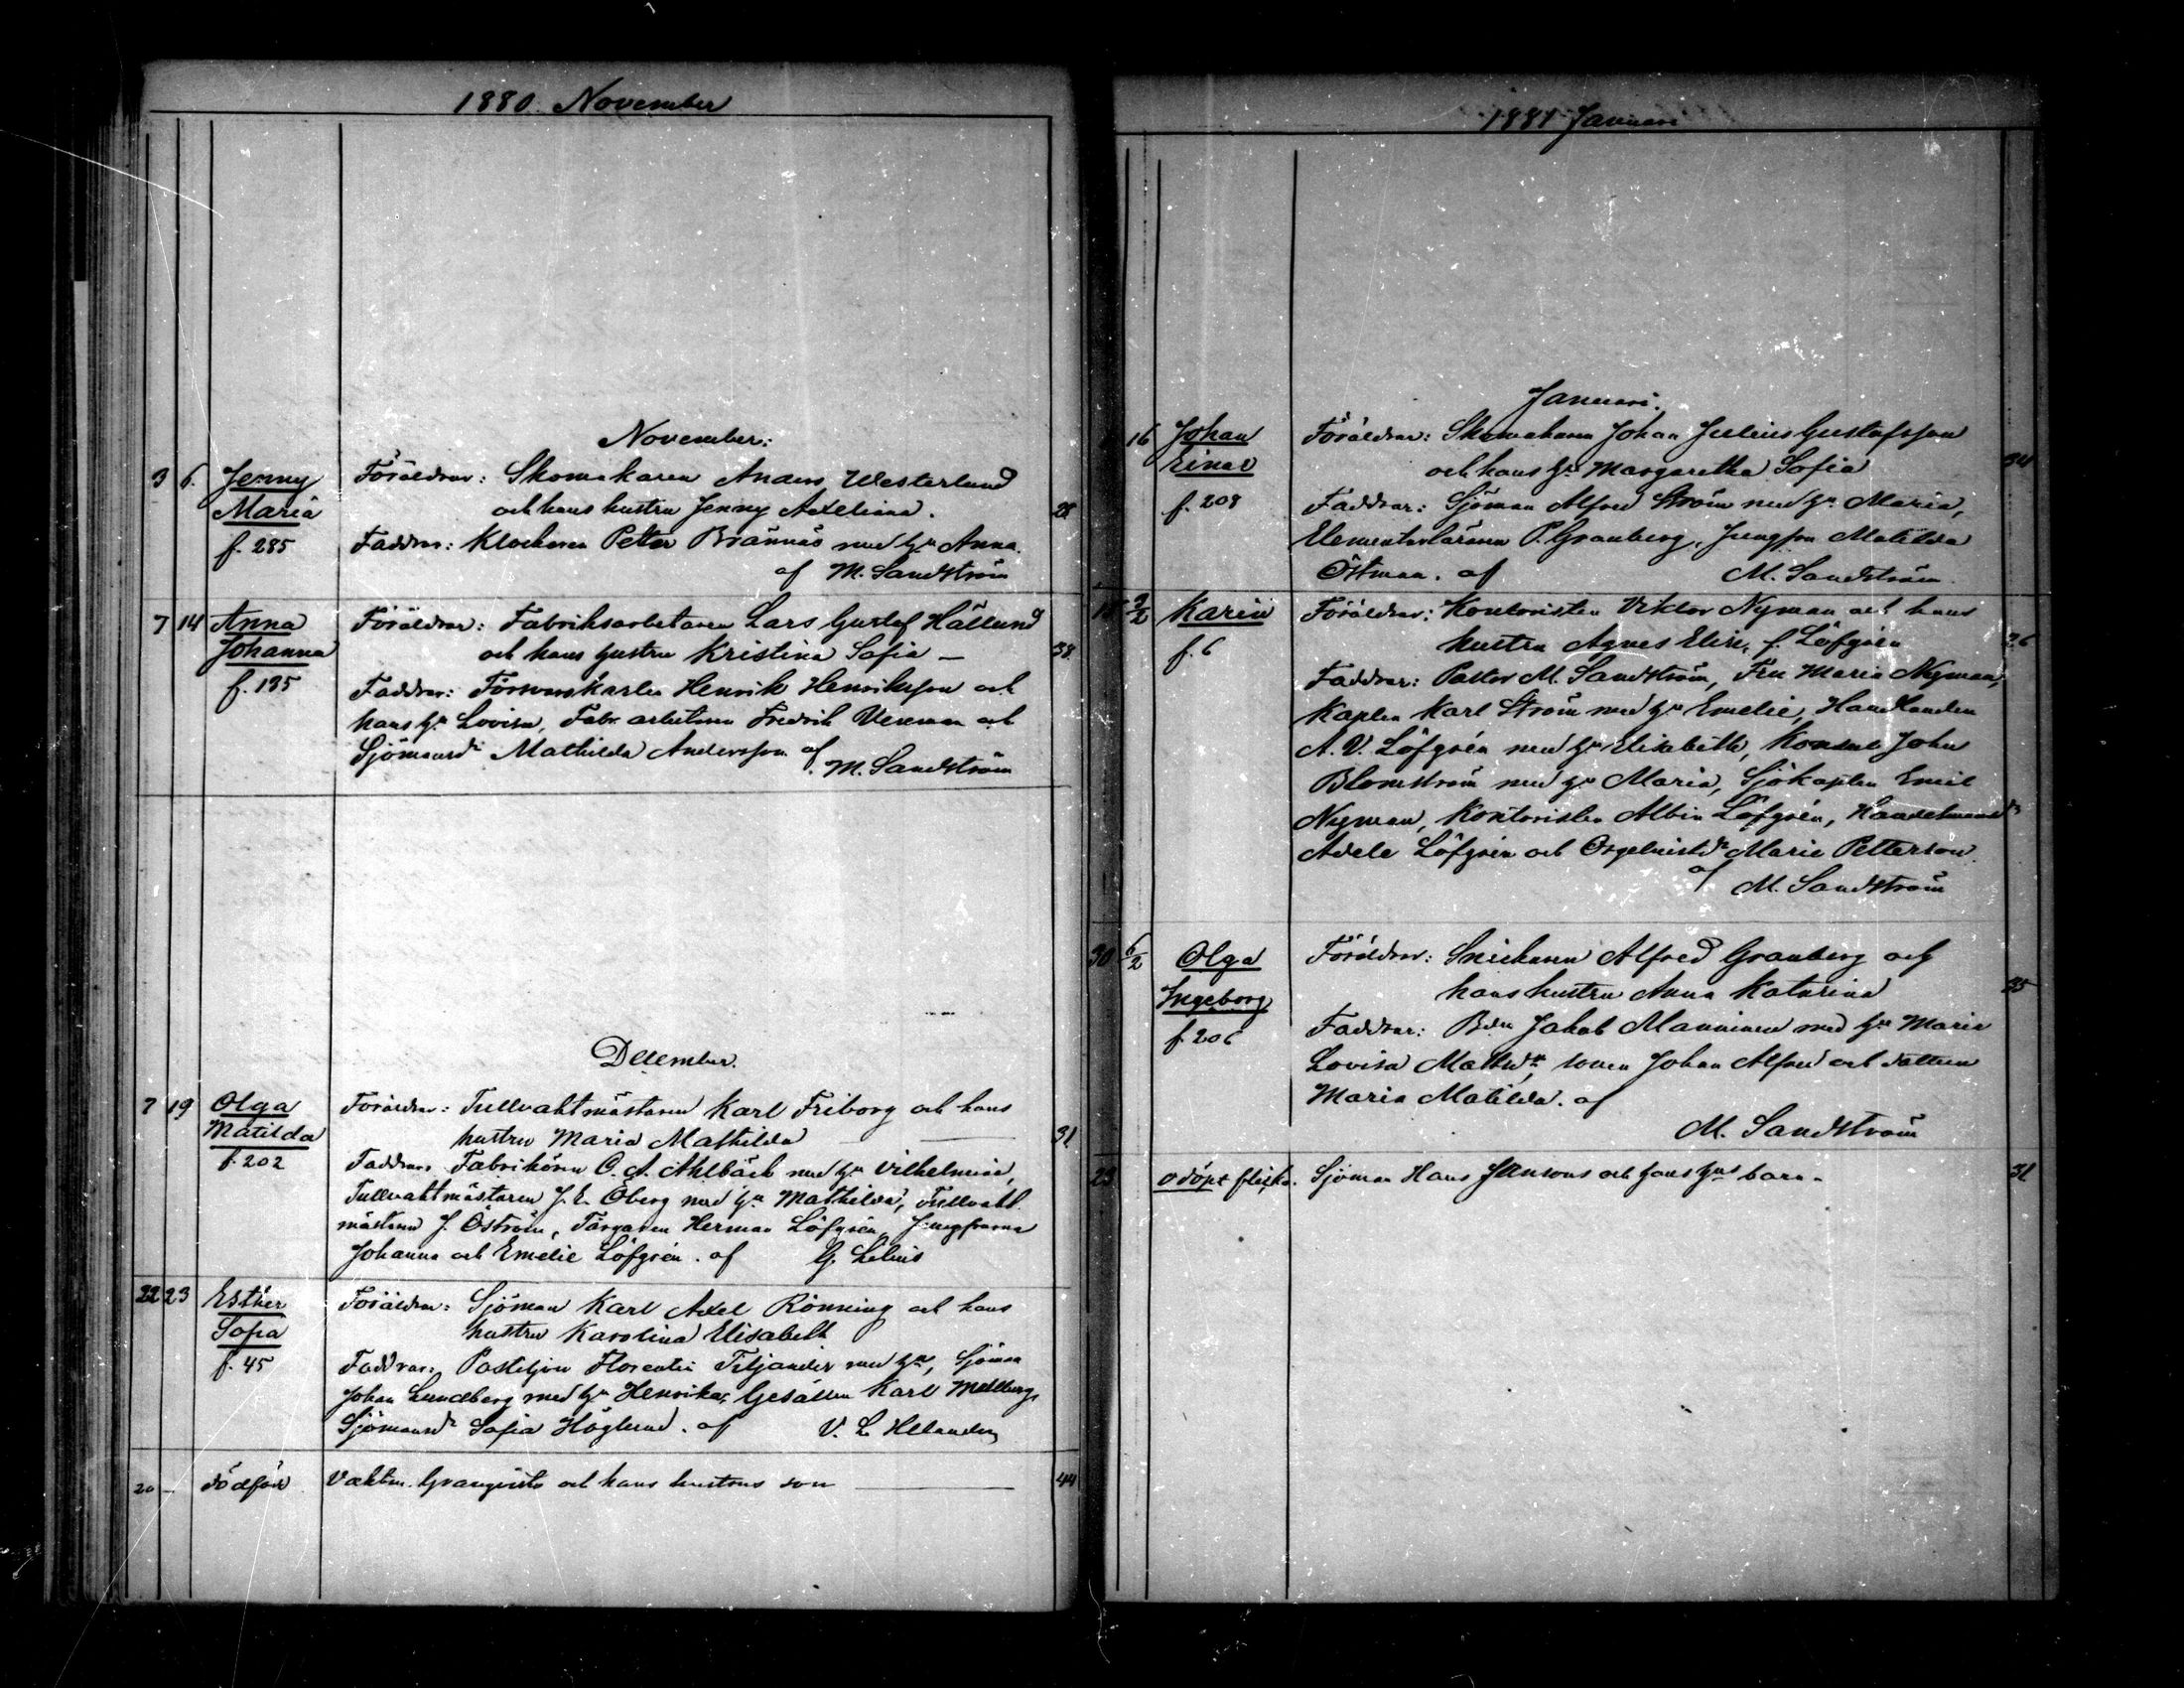 1880. November
November:
3 6. Jenny Maria f. 285
Föräldrar: Skomakaren Anders Westerlund
och hans hustru Jenny Adeliina. 28
Faddrar: Klockaren Petter Brännäs med hu Anna.
af M. Sandström
7 14 Anna Johanna f. 195
Föräldrar: Fabriksarbetaren Lars Gustaf Hällund
och hans hustru Kristina Sofia — 38
Faddrar: Försvarskarlen Henrik Henriksson och
hans hu Lovisa, Fabr. arbetaren Fredrik Vexman och
Sjömansdr Mathilda Andersson af
M. Sandström
December.
7 19 Olga Matilda f. 202
Föräldrar: Tullvaktmästaren Karl Friborg och hans
hustru Maria Mathilda — 31
Faddrar: Fabrikören C. A. Ahlbäck med hu Vilhelmina,
Tullvaktmästaren J. E. Öberg med hu Mathilda, Tullvakt
mästaren J. Öström, Färgaren Herman Löfgrén, Jungfrurna
Johanna och Emelie Löfgrén. af G. Lelius
22 23 Esther Sofia f. 45
Föräldrar: Sjöman Karl Axel Rönning och hans
hustru Karolina Elisabeth
Faddrar: Postiljon Florentin Tiljander med hu, Sjöman
Johan Lundberg med hu Henrika, Gesällen Karl Mellberg,
Sjömansdr Sofia Höglund. af V. L. Helander
20 — dödfödt Vaktm. Granqvists och hans hustrus son — 44
1881 Januari
Januari.
16 Johan Einar f. 208
Föräldrar: Skomakaren Johan Julius Gustafsson
och hans hu Margaretha Sofia 34
Faddrar: Sjöman Alfred Ström med hu Maria,
Elementarläraren P. Granberg, Jungfru Matilda
Östman. af M. Sandström.
18 9/2 Karin f. 6
Föräldrar: Kontoristen Viktor Nyman och hans
hustru Agnes Elise, f. Löfgrén 26
Faddrar: Pastor M. Sandström, Fru Maria Nyman,
Kapten Karl Ström med hu Emelie, Handlanden
A. V. Löfgrén med hu Elisabeth, Konsul John
Blomström med hu Maria, Sjökapten Emil
Nyman, Kontoristen Albin Löfgrén, Handelsmansdr
Adele Löfgrén och Orgelnistdr Marie Petterson.
af M. Sandström
30 6/2 Olga Ingeborg f. 206
Föräldrar: Snickaren Alfred Granberg och
hans hustru Anna Katarina 35
Faddrar: Bdn Jakob Manninen med hu Maria
Lovisa Mattsdr, sonen Johan Alfred och dottren
Maria Matilda. af
M. Sandström
23 odöpt flicka. Sjöman Hans Jansons och hans hus barn. 31